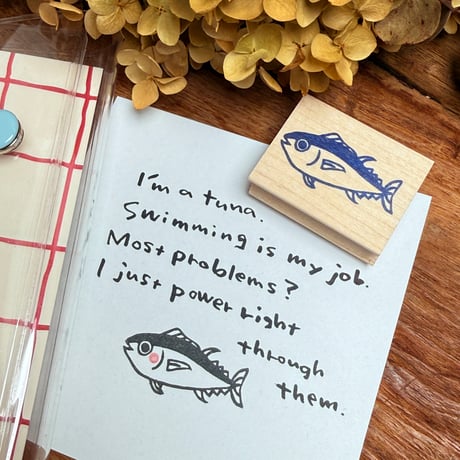 I'm a tuna.
Swimming is my job.
Most problems?
I just power right
through
them.